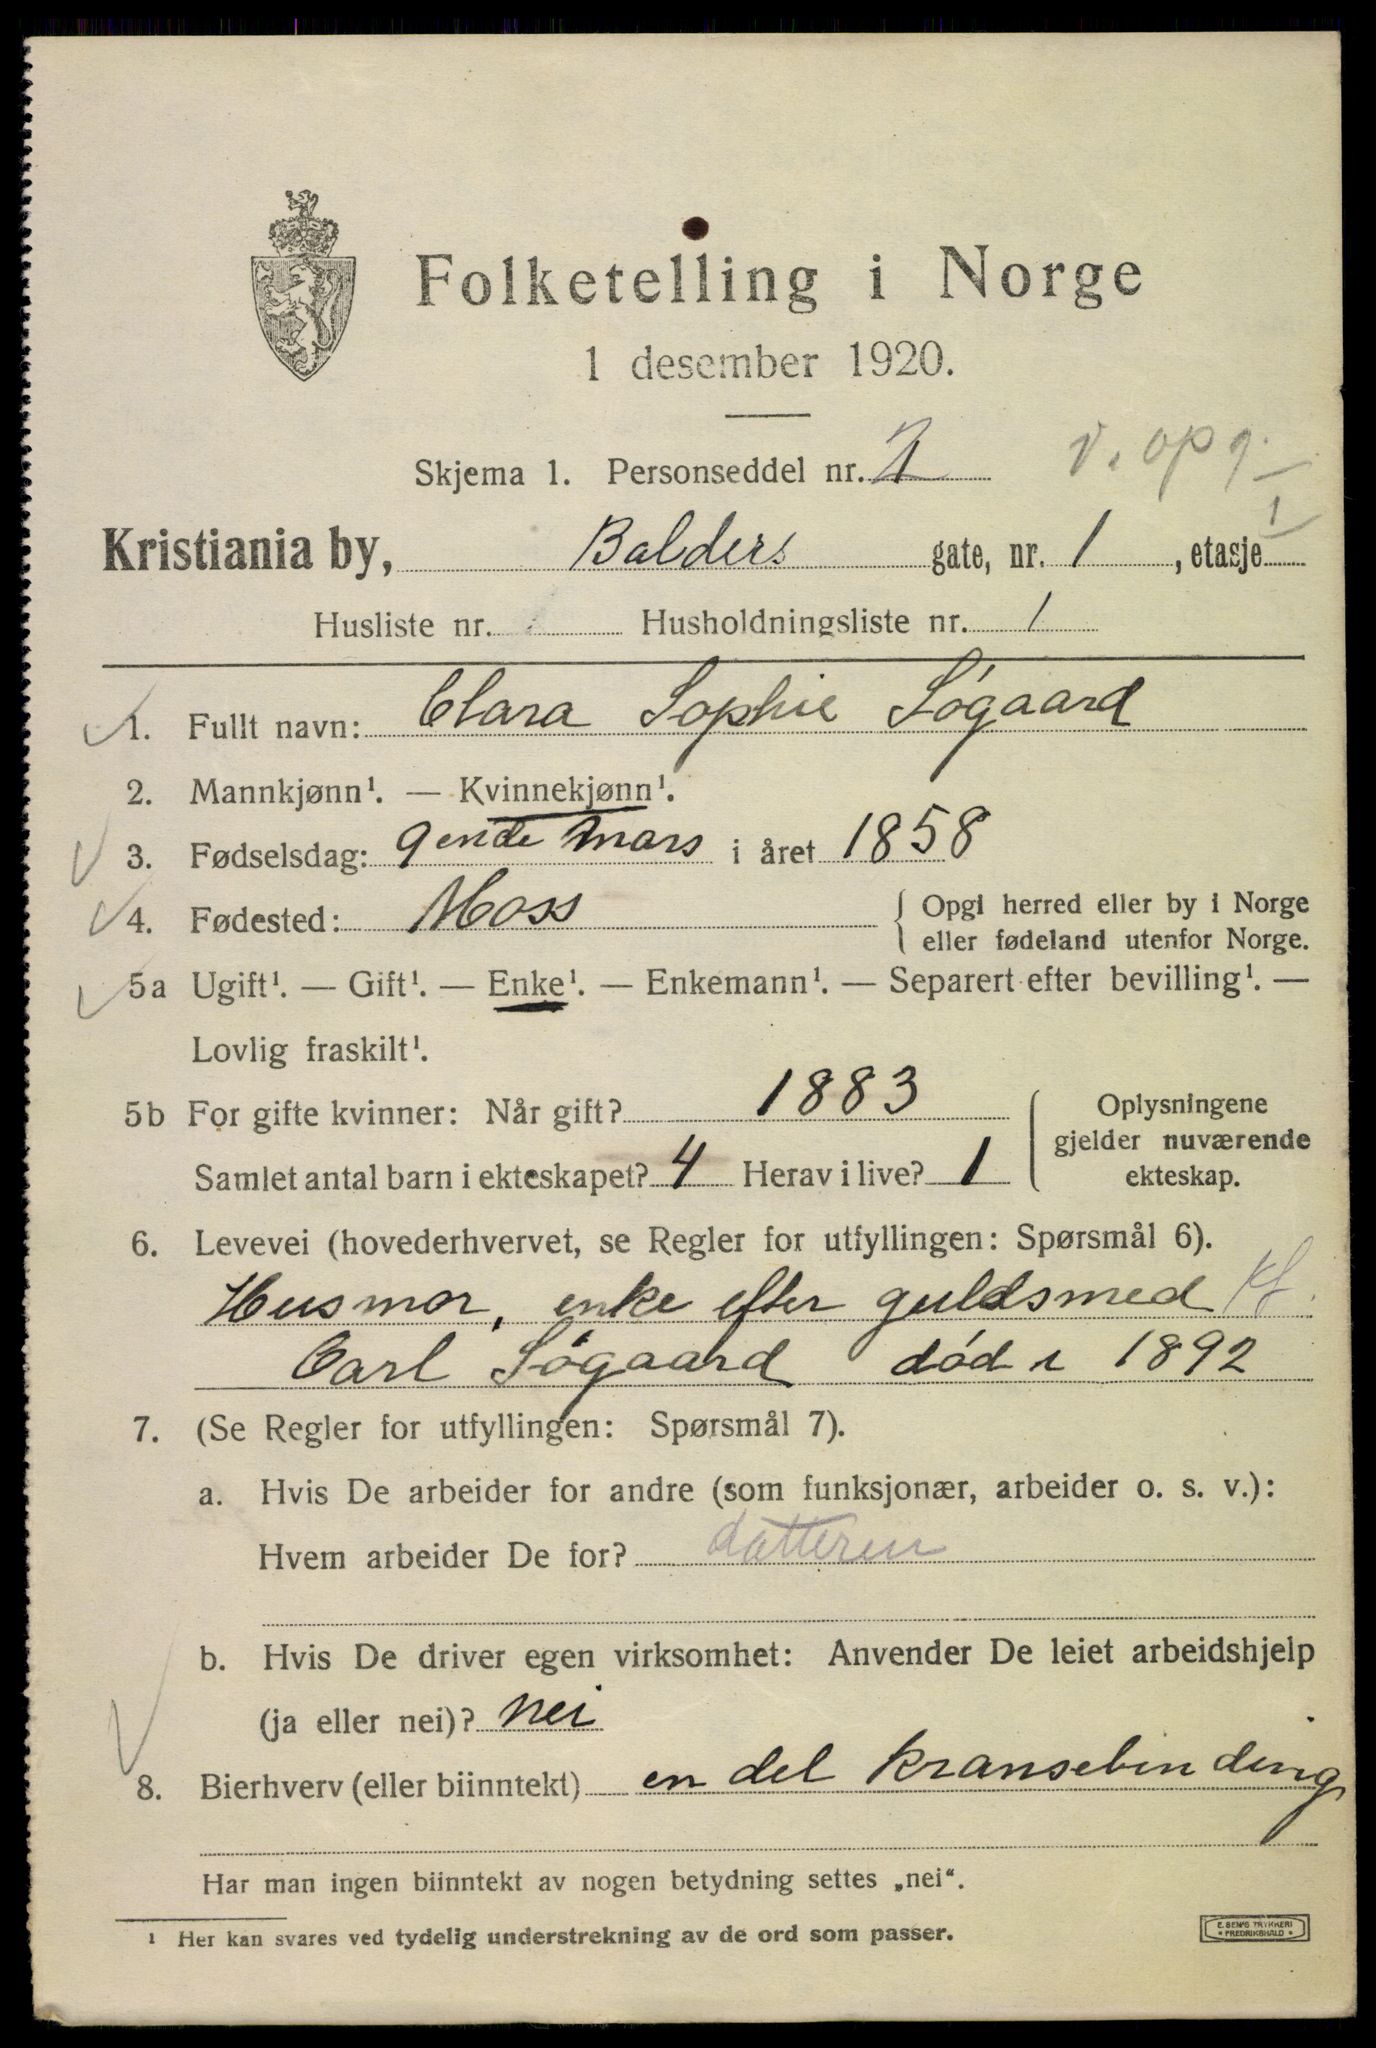 Folketelling i Norge
1 desember 1920.
Skjema 1. Personseddel nr. 2 v. opg.
Kristiania by, Balders gate, nr. 1, etasje 1
Husliste nr. Husholdningsliste nr. 1
1. Fullt navn: Clara Sophie Søgaard
2. Mannkjønn¹. — Kvinnekjønn¹.
3. Fødselsdag: 9ende mars i året 1858
4. Fødested: Moss { Opgi herred eller by i Norge
eller fødeland utenfor Norge.
5a Ugift¹. — Gift¹. — Enke¹. — Enkemann¹. — Separert efter bevilling¹. —
Lovlig fraskilt¹.
5b For gifte kvinner: Når gift? 1883
Samlet antal barn i ekteskapet? 4 Herav i live? 1
Oplysningene
gjelder nuværende
ekteskap.
6. Levevei (hovederhvervet, se Regler for utfyllingen: Spørsmål 6).
Husmor, enke efter guldsmed
Carl Søgaard død i 1892
7. (Se Regler for utfyllingen: Spørsmål 7).
a. Hvis De arbeider for andre (som funksjonær, arbeider o. s. v.):
Hvem arbeider De for? datteren
b. Hvis De driver egen virksomhet: Anvender De leiet arbeidshjelp
(ja eller nei)? nei
8. Bierhverv (eller biinntekt) en del kransebinding
Har man ingen biinntekt av nogen betydning settes „nei“.
¹ Her kan svares ved tydelig understrekning av de ord som passer.
E. SEM'S TRYKKERI
FREDRIKSHALD